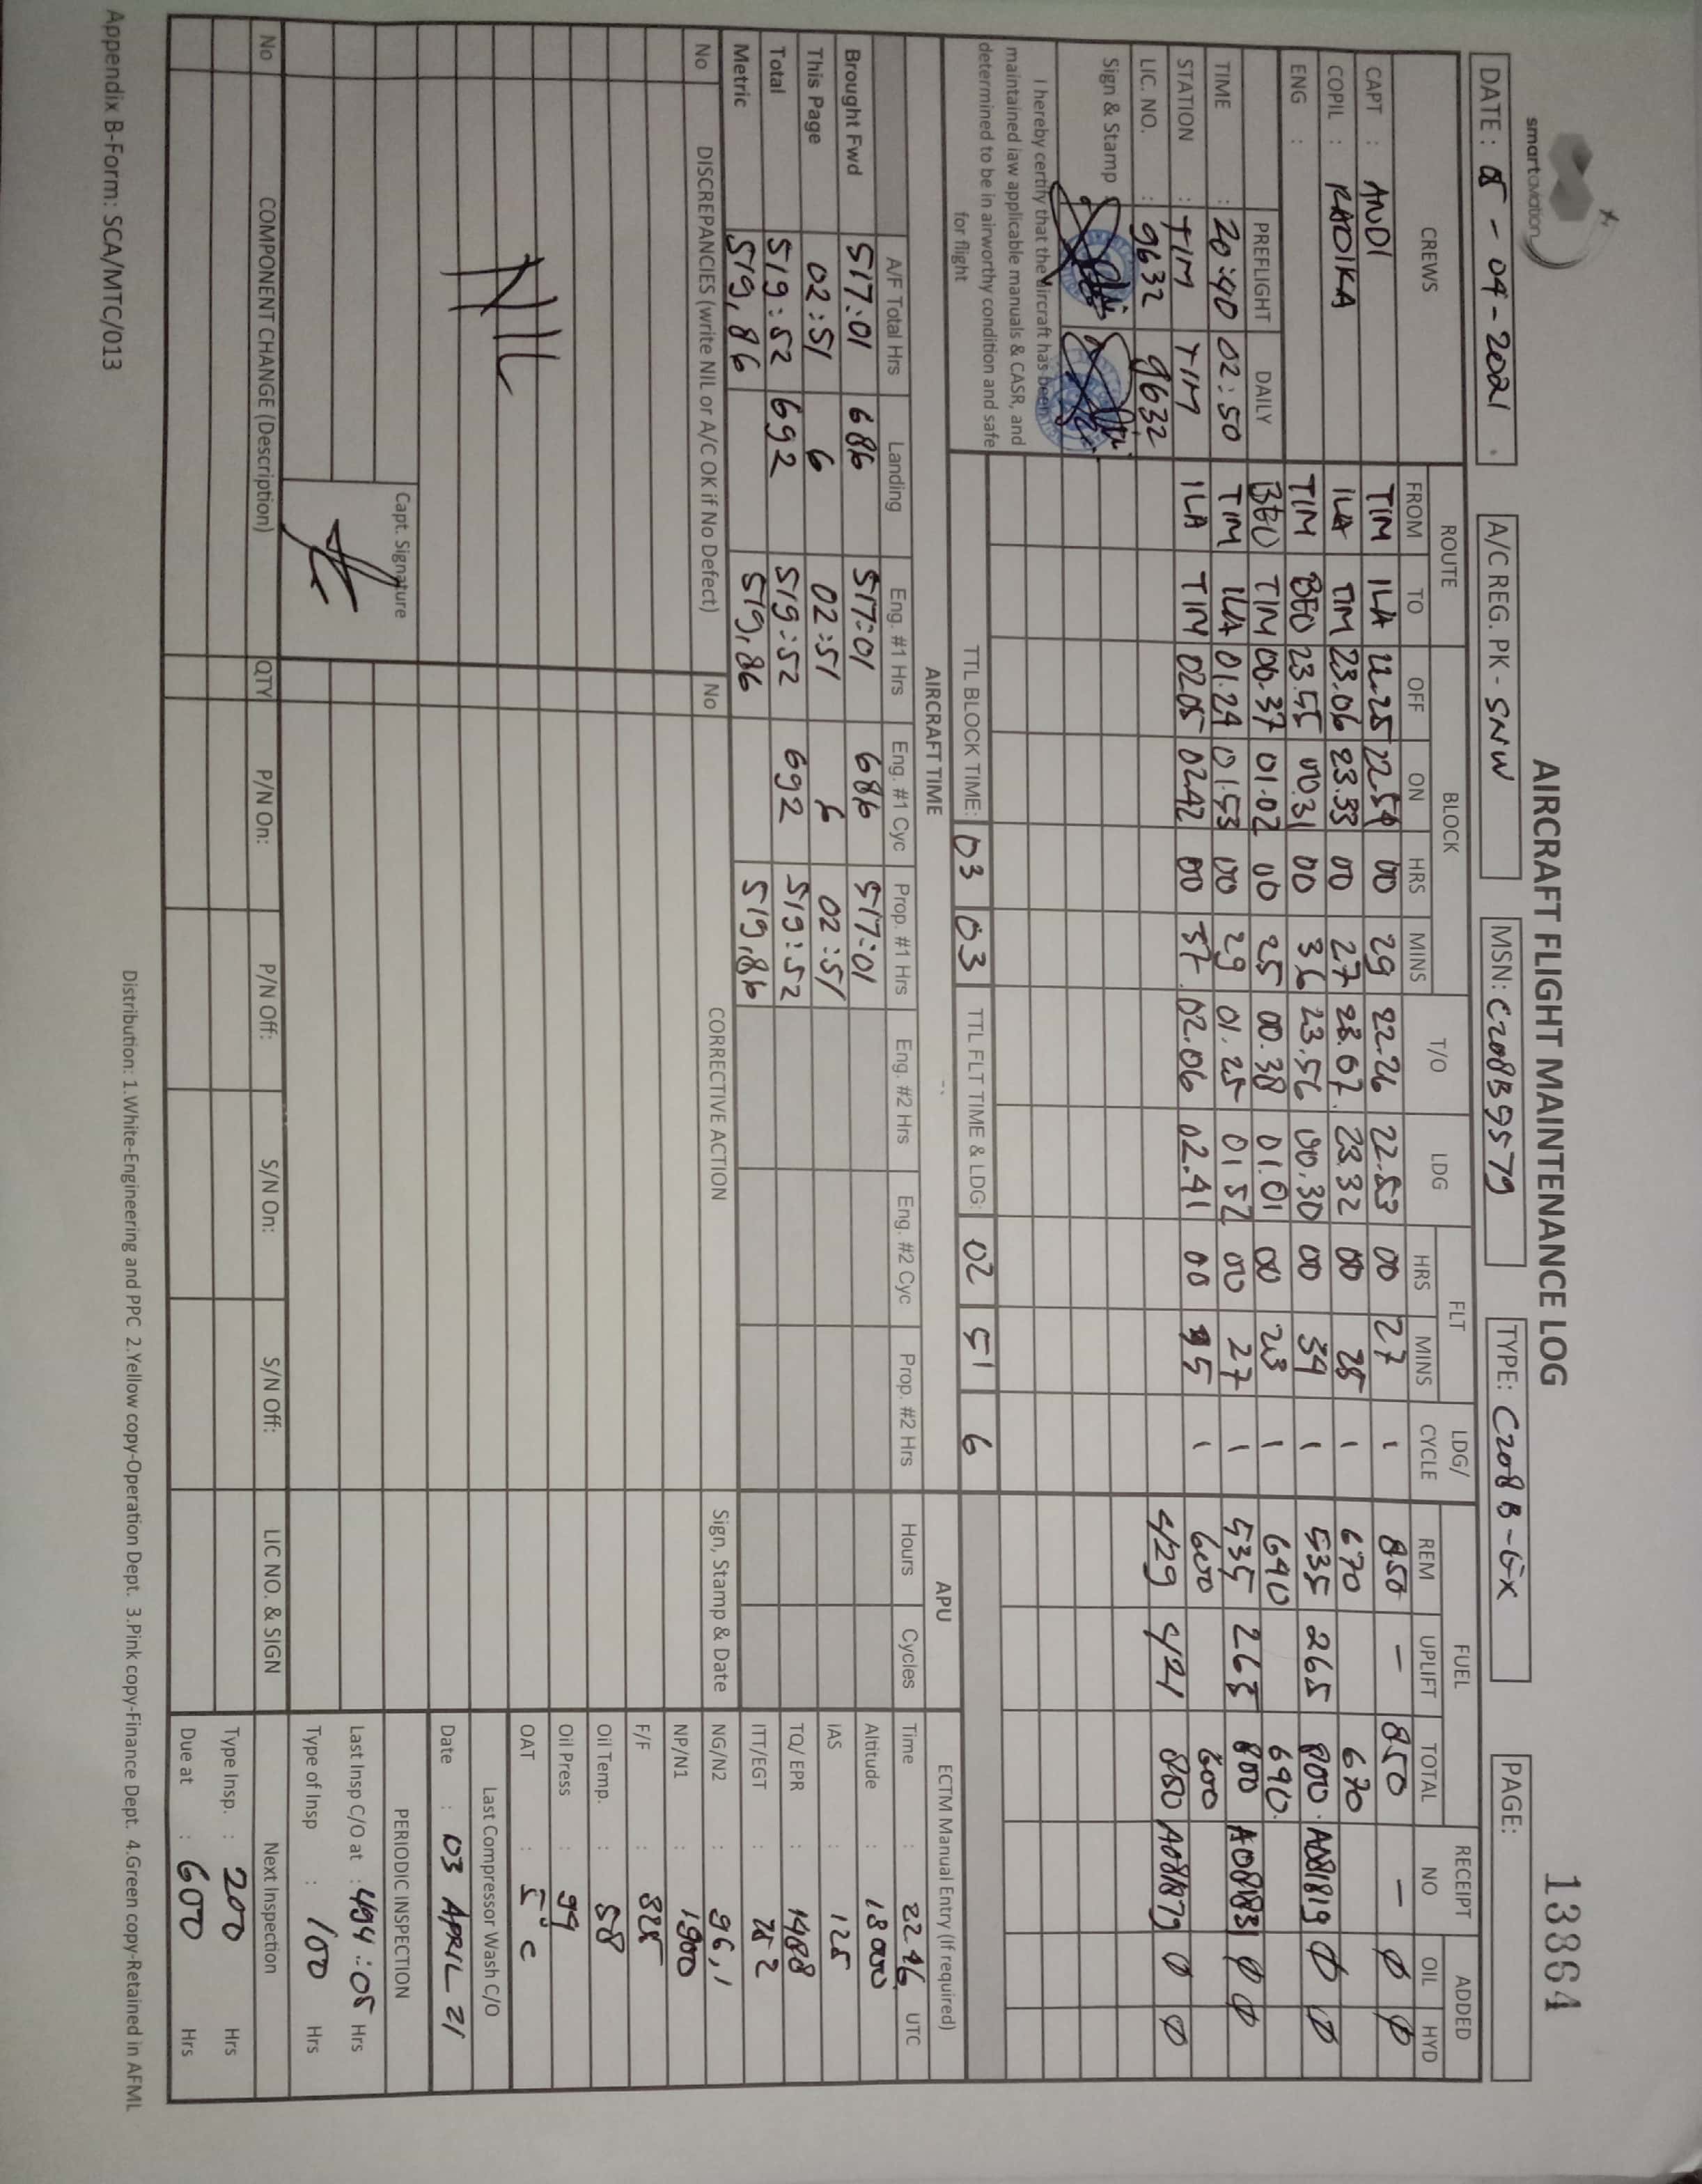 smartaviation
AIRCRAFT FLIGHT MAINTENANCE LOG
13864
DATE : 05 - 04 - 2021 . A/C REG. PK - SNW MSN: C208B5579 TYPE: C208 B - GX PAGE:
CREWS ROUTE BLOCK T/O LDG FLT LDG/ CYCLE FUEL RECEIPT NO ADDED
FROM TO OFF ON HRS MINS HRS MINS REM UPLIFT TOTAL OIL HYD
CAPT : ANDI TIM ILA 22.25 22.54 00 29 22.26 22.53 00 27 1 850 - 850 - 0 0
COPIL : RADIKA ILA TIM 23.06 23.33 00 27 23.07. 23.32 00 25 1 670 670
ENG : TIM BEO 23.55 00.31 00 36 23.56 00.30 00 34 1 535 265 800. A081819 0 0
PREFLIGHT DAILY BEO TIM 00.37 01.02 00 25 00.38 01.01 00 23 1 690 690.
TIME : 20:40 02:50 TIM ILA 01.24 01.53 00 29 01.25 01.52 00 27 1 535 265 800 A081831 0 0
STATION : TIM TIM ILA TIM 02.05 02.42 00 37. 02.06 02.41 00 35 1 600 600
LIC. NO. : 9632 9632 429 421 850 A081879 0 0
Sign & Stamp
I hereby certify that the aircraft has been
maintained iaw applicable manuals & CASR, and
determined to be in airworthy condition and safe
for flight
TTL BLOCK TIME: 03 03 TTL FLT TIME & LDG: 02 51 6
AIRCRAFT TIME APU ECTM Manual Entry (If required)
A/F Total Hrs Landing Eng. #1 Hrs Eng. #1 Cyc Prop. #1 Hrs Eng. #2 Hrs Eng. #2 Cyc Prop. #2 Hrs Hours Cycles Time : 2246 UTC
Brought Fwd 517:01 686 517:01 686 517:01 Altitude : 18000
This Page 02:51 6 02:51 6 02:51 IAS : 125
Total 519:52 692 519:52 692 519:52 TQ/ EPR : 1488
Metric 519,86 519,86 519,86 ITT/EGT :
No DISCREPANCIES (write NIL or A/C OK if No Defect) No CORRECTIVE ACTION Sign, Stamp & Date NG/N2 : 96,1
NP/N1 : 1900
F/F : 325
Oil Temp. : 58
Oil Press : 99
NIL
OAT : 5°c
Last Compressor Wash C/O
Date : 03 APRIL 21
Capt. Signature
PERIODIC INSPECTION
Last Insp C/O at : 494:05 Hrs
Type of Insp : 100 Hrs
No COMPONENT CHANGE (Description) QTY P/N On: P/N Off: S/N On: S/N Off: LIC NO. & SIGN Next Inspection
Type Insp. : 200 Hrs
Due at : 600 Hrs
Distribution: 1.White-Engineering and PPC 2.Yellow copy-Operation Dept. 3.Pink copy-Finance Dept. 4.Green copy-Retained in AFML
Appendix B-Form: SCA/MTC/013